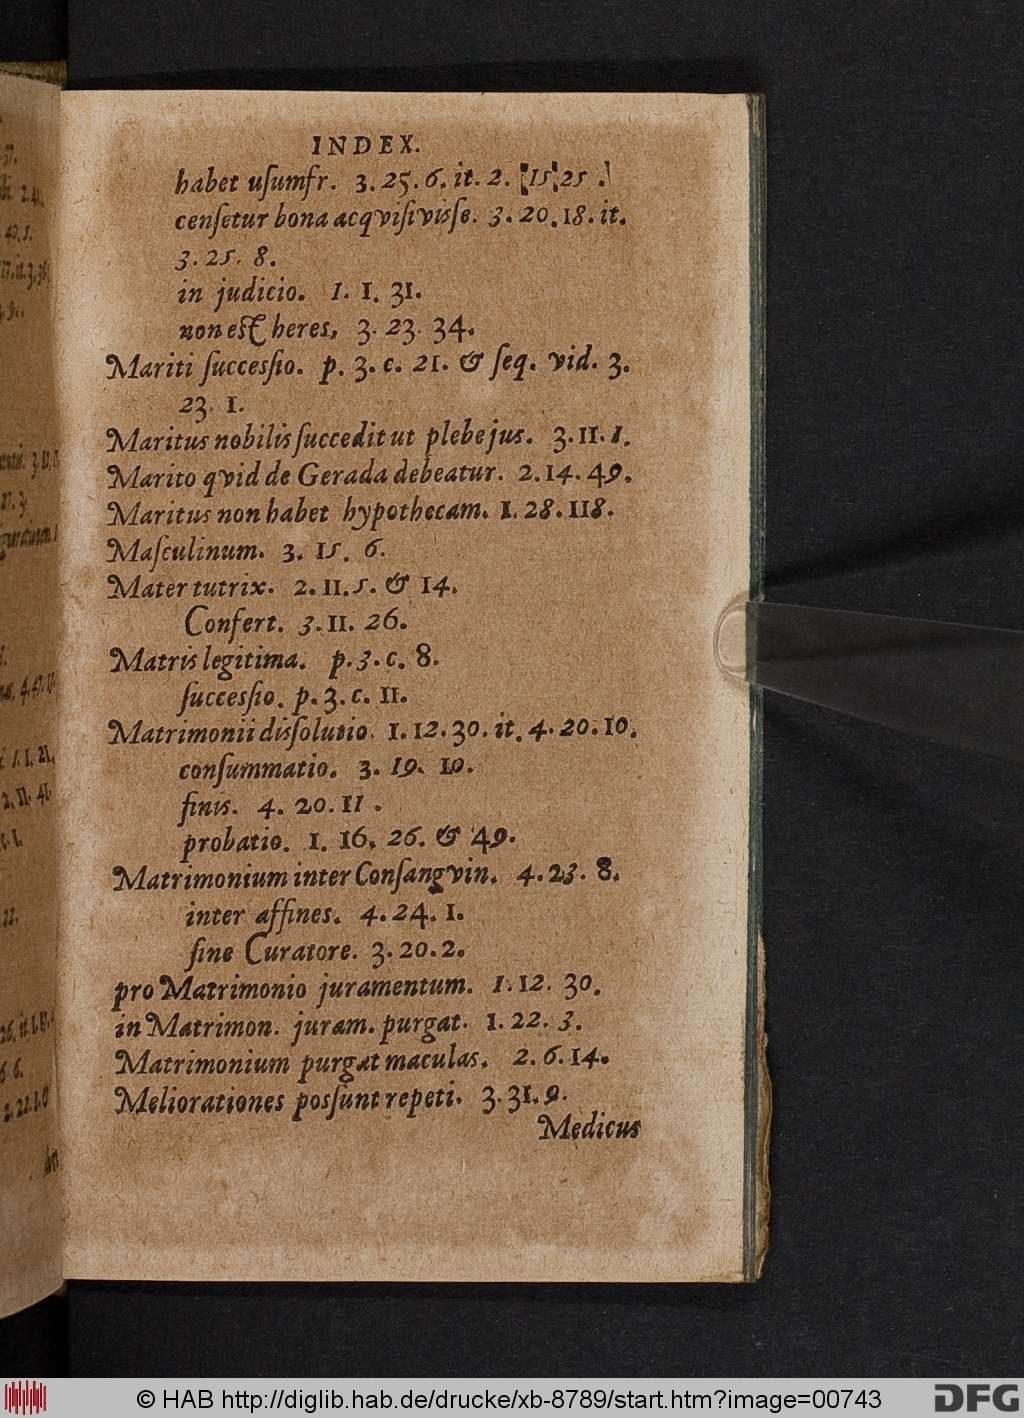 INDEX.
habet uſumfr. 3. 25. 6. it. 2. 15. 25.
cenſetur bona acqviſiviſſe. 3. 20. 18. it.
3. 25. 8.
in judicio. 1. 1. 31.
non eſt heres. 3. 23. 34.
Mariti ſucceſſio. p. 3. c. 21. & ſeq. vid. 3.
23. 1.
Maritus nobilis ſuccedit ut plebejus. 3. 11. 1.
Marito qvid de Gerada debeatur. 2. 14. 49.
Maritus non habet hypothecam. 1. 28. 118.
Maſculinum. 3. 15. 6.
Mater tutrix. 2. 11. 5. & 14.
Confert. 3. 11. 26.
Matris legitima. p. 3. c. 8.
ſucceſſio. p. 3. c. 11.
Matrimonii diſſolutio. 1. 12. 30. it. 4. 20. 10.
conſummatio. 3. 19. 10.
finis. 4. 20. 11.
probatio. 1. 16. 26. & 49.
Matrimonium inter Conſangvin. 4. 23. 8.
inter affines. 4. 24. 1.
ſine Curatore. 3. 20. 2.
pro Matrimonio juramentum. 1. 12. 30.
in Matrimon. juram. purgat. 1. 22. 3.
Matrimonium purgat maculas. 2. 6. 14.
Meliorationes poſſunt repeti. 3. 31. 9.
Medicus
© HAB http://diglib.hab.de/drucke/xb-8789/start.htm?image=00743
DFG